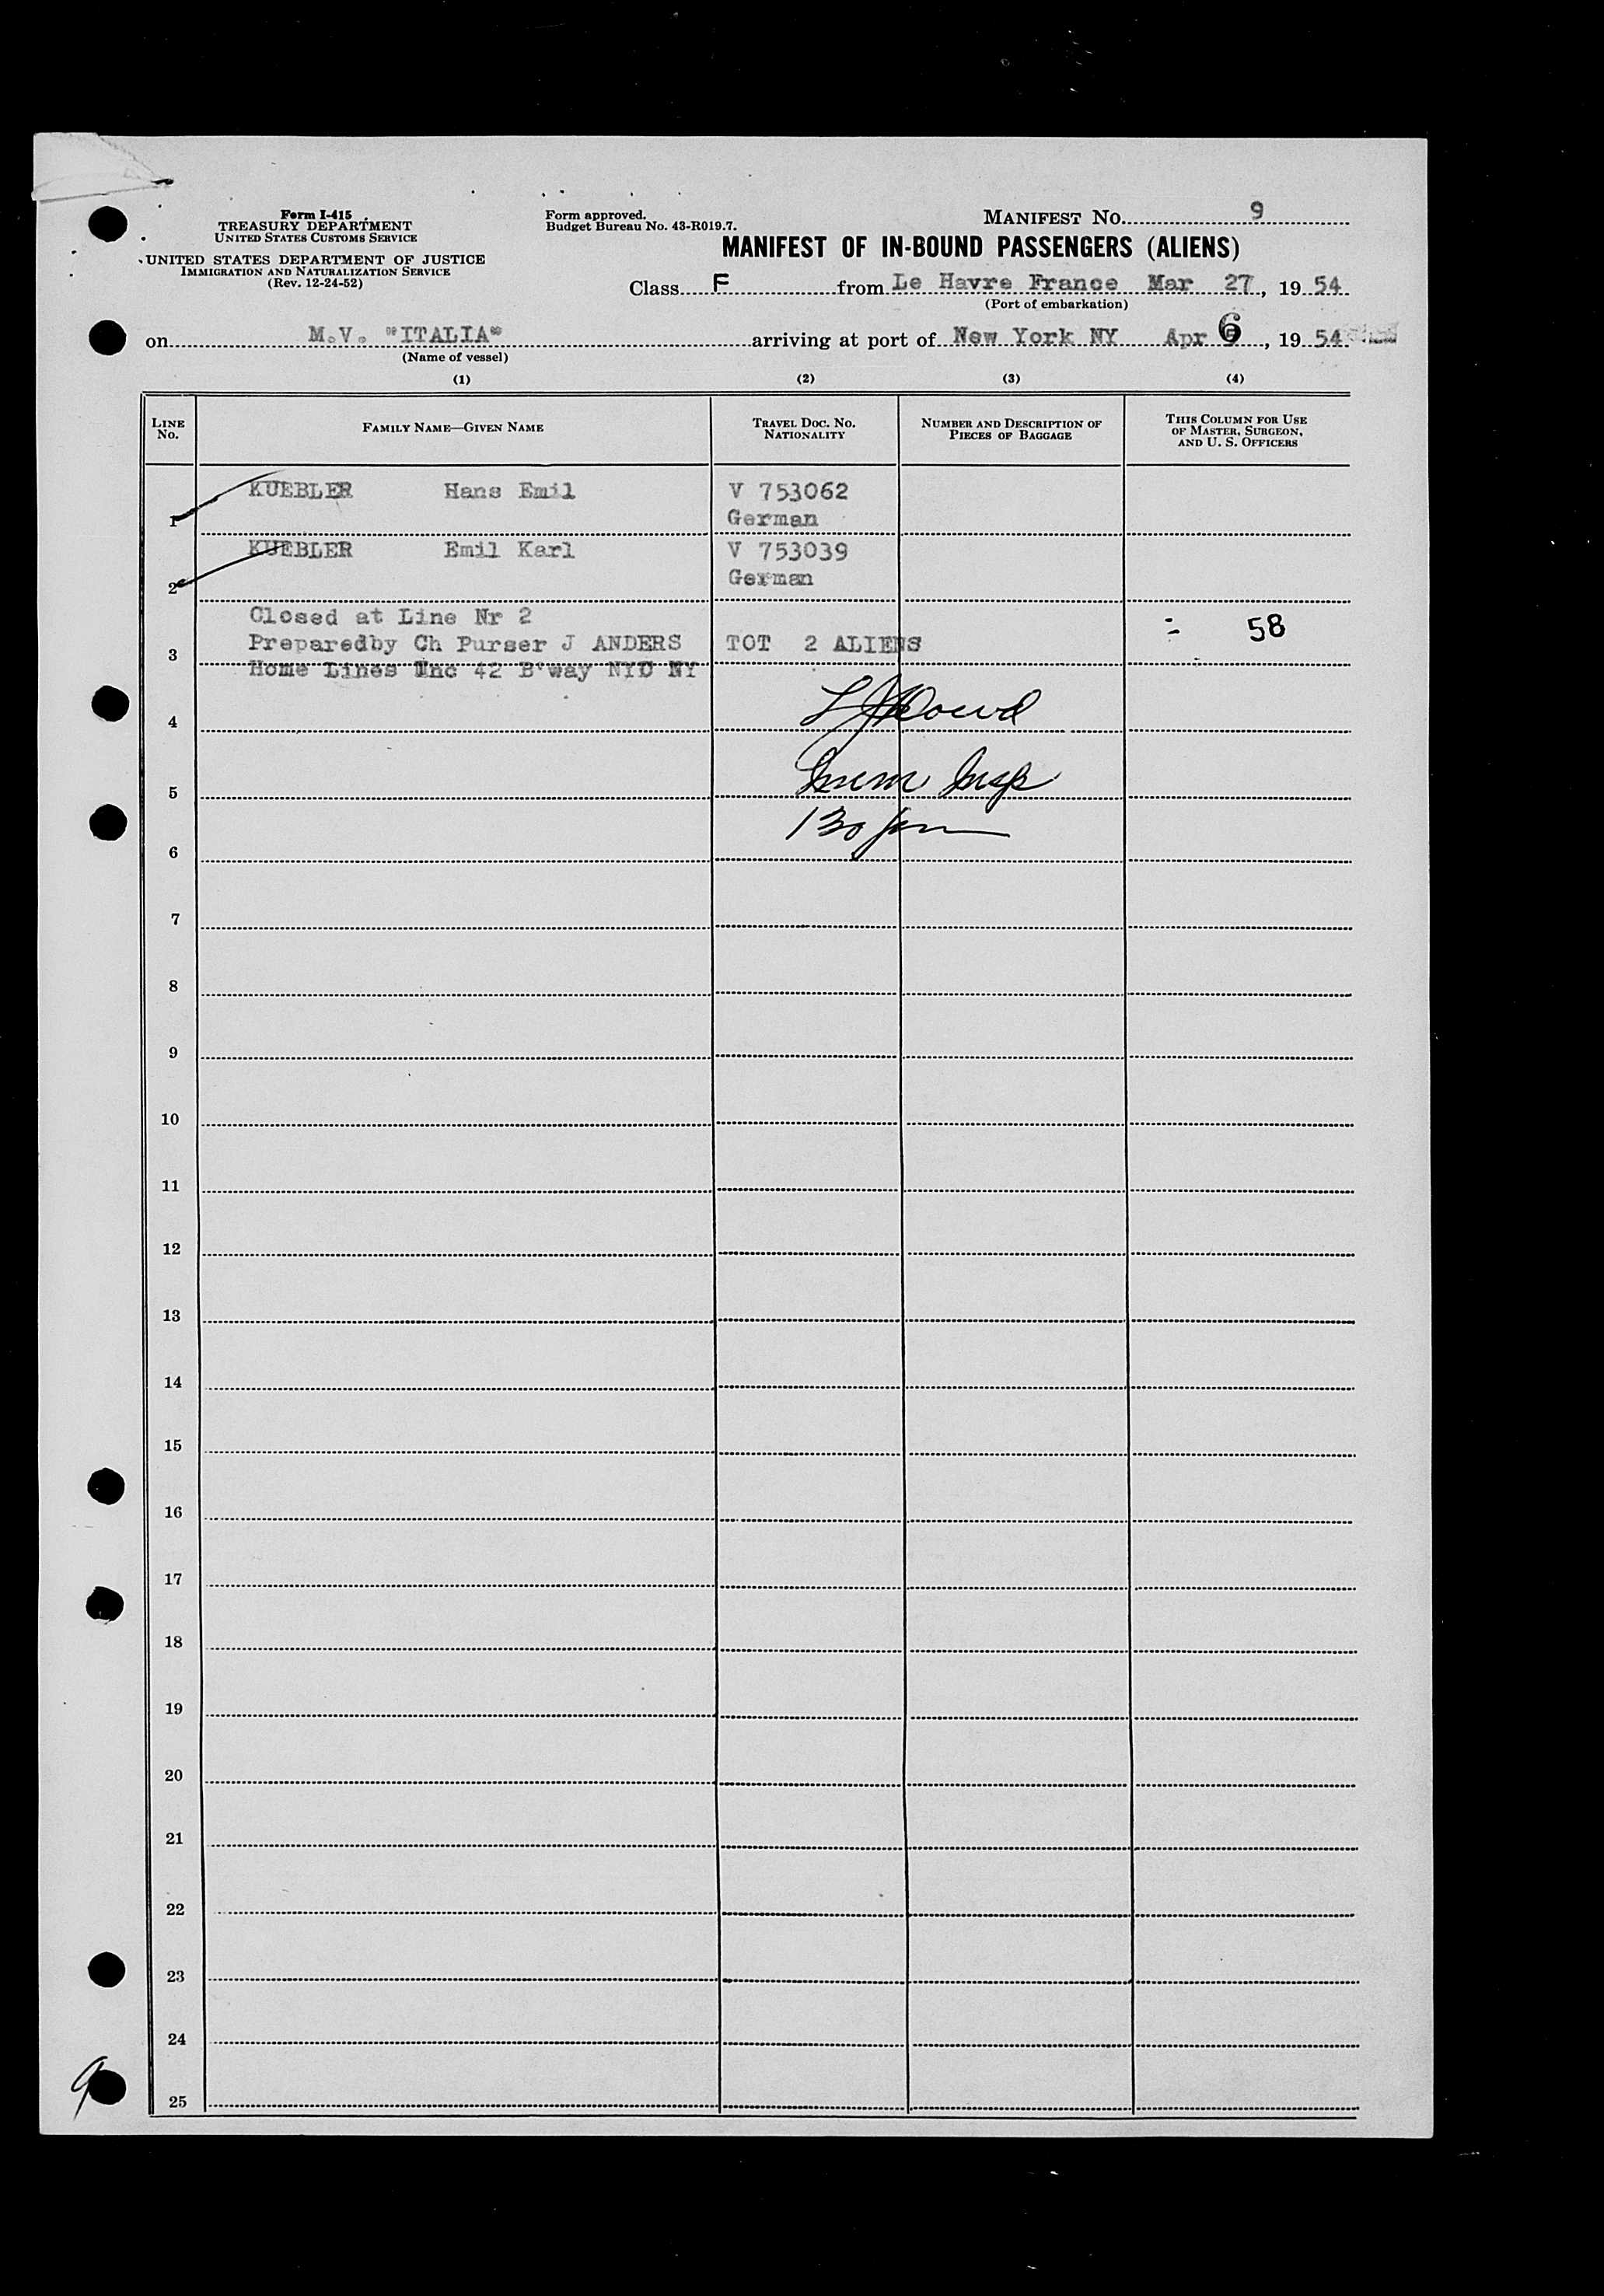 Form I-415
TREASURY DEPARTMENT
UNITED STATES CUSTOMS SERVICE
UNITED STATES DEPARTMENT OF JUSTICE
IMMIGRATION AND NATURALIZATION SERVICE
(Rev. 12-24-52)
Form approved.
Budget Bureau No. 43-R019.7.
MANIFEST NO. 9
MANIFEST OF IN-BOUND PASSENGERS (ALIENS)
Class F from Le Havre France Mar 27, 19 54
(Port of embarkation)
on M.V. "ITALIA" arriving at port of New York NY Apr 6, 19 54
(Name of vessel)
(1) (2) (3) (4)
LINE NO. FAMILY NAME—GIVEN NAME TRAVEL DOC. NO. NATIONALITY NUMBER AND DESCRIPTION OF PIECES OF BAGGAGE THIS COLUMN FOR USE OF MASTER, SURGEON, AND U. S. OFFICERS
KUEBLER Hans Emil V 753062
1 German
KUEBLER Emil Karl V 753039
2 German
Closed at Line Nr 2
Preparedby Ch Purser J ANDERS TOT 2 ALIENS 58
3
Home Lines Inc 42 B'way NYC NY
4
Imm Insp
5
130 pm
6
7
8
9
10
11
12
13
14
15
16
17
18
19
20
21
22
23
24
9
25